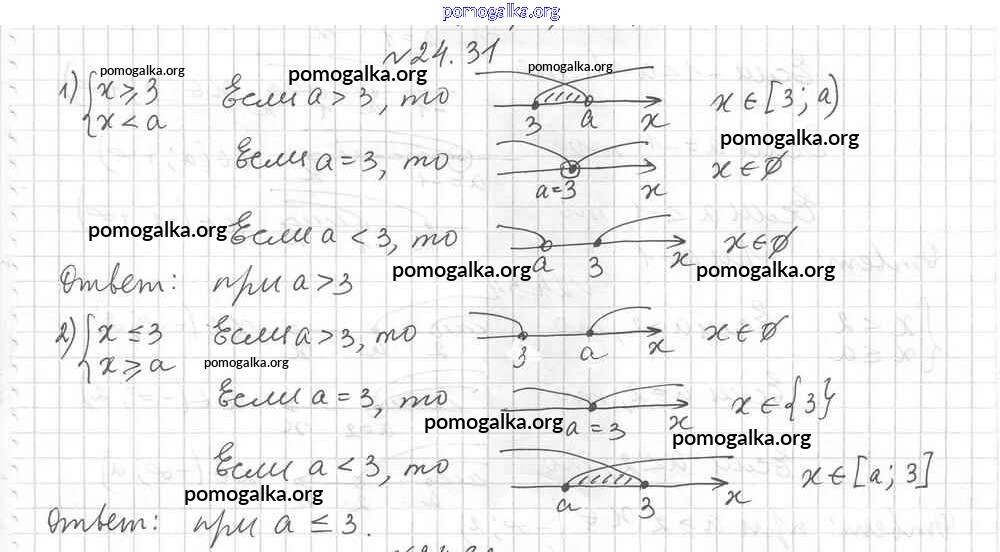 pomogalka.org
№24.31
1) { x ⩾ 3 Если a > 3, то 3 a x x ∈ [3; a)
x < a
pomogalka.org pomogalka.org pomogalka.org
pomogalka.org
Если a = 3, то a = 3 x x ∈ ∅
pomogalka.org Если a < 3, то a 3 x x ∈ ∅
pomogalka.org pomogalka.org
Ответ: при a > 3
2) { x ≤ 3 Если a > 3, то 3 a x x ∈ ∅
x ⩾ a pomogalka.org
Если a = 3, то a = 3 x x ∈ {3}
pomogalka.org pomogalka.org
Если a < 3, то a 3 x x ∈ [a; 3]
pomogalka.org
Ответ: при a ≤ 3.